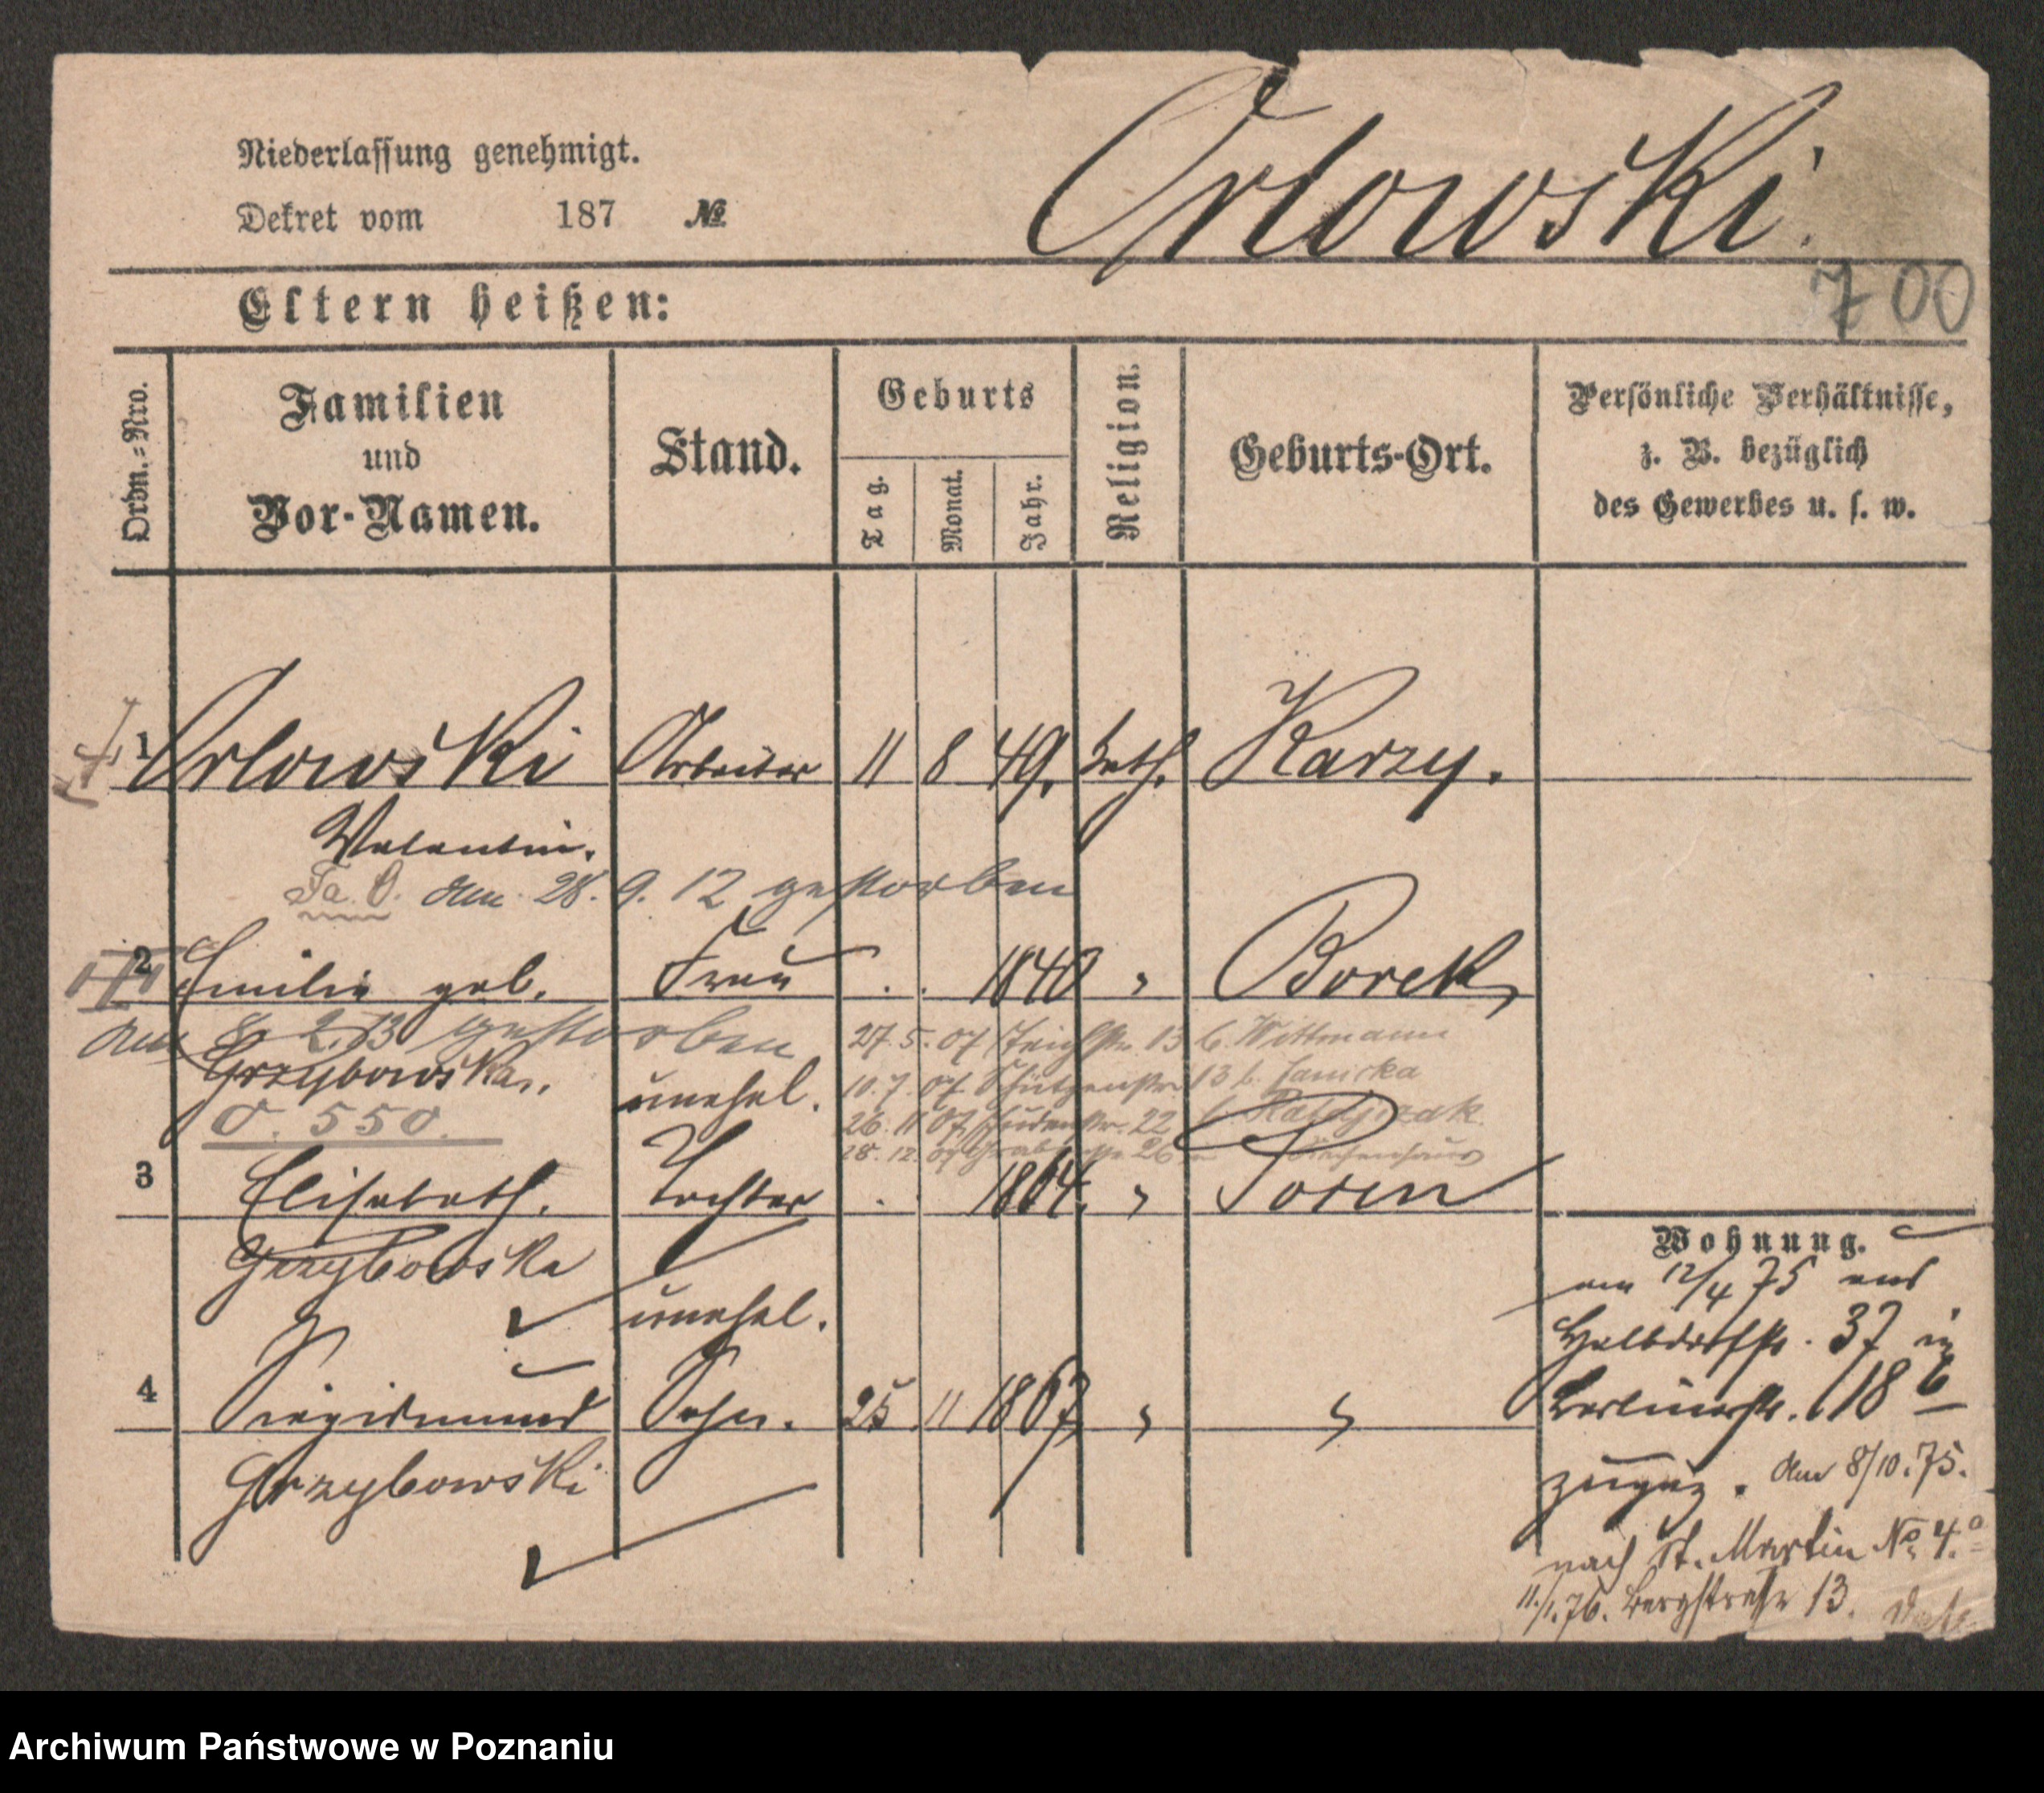 Orlowski.
Niederlassung genehmigt.
Dekret vom 187 №
700
Eltern heißen:
Ordn.-Nro.
Familien
und
Vor-Namen.
Stand.
Geburts
Tag.
Monat.
Jahr.
Religion.
Geburts-Ort.
Persönliche Verhältnisse,
z. B. bezüglich
des Gewerbes u. s. w.
1 Orlowski Arbeiter 11 8 49. kath. Karzy.
Valentin.
am 28. 9. 12 gestorben
2 Emilie geb. Frau . . 1840 " Borek
am 8. 2. 13 gestorben
27. 5. 07 13 b. Wittmann
Grzybowska.
unehel.
10. 7. 07 Schützenstr. 13 b. Janicka
O. 550.
26. 11 07 22 b. Ratajczak
18. 12. 07 26 Siechenhaus
3 Elisabeth. Tochter . . 1864. " Posen
Grzybowska
unehel.
4 Siegismund Sohn. 25 11 1867 " "
Grzybowski
Wohnung.
am 12/4 75 aus
Halbdorfstr. 37 in
Berlinerstr. 18 b
zugez. den 8/10.75.
nach St. Martin No. 4.
11./1.76. Bergstraße 13.
Archiwum Państwowe w Poznaniu